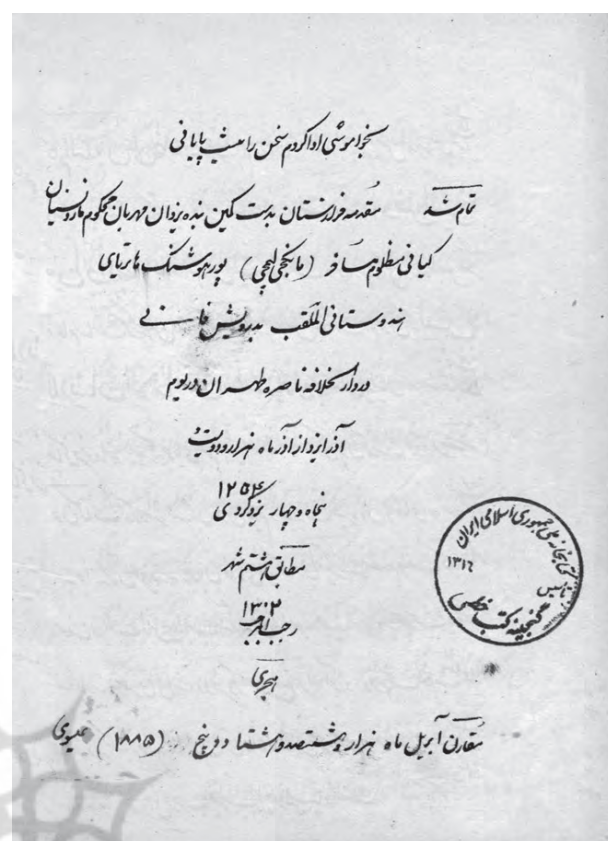 بخواموشی ادا کردم سخن را نیست پایانی
تمام شد مقدمه فرازستان بدست کمین بنده یزدان مهربان محکوم ماردنسیان
کیانی مظلوم مسافر (مانکجی لیمجی) پور هوشنگ هاتریای
هندوستانی الملقب بدرویش فانی
در دار الخلافه ناصره طهران در یوم
آذر ایزد از آذر ماه هزار و دویست و
۱۲۵۴
پنجاه و چهار یزدگردی
مطابق هشتم شهر
۱۳۰۲
رجب المرجب
هجری
مقارن آبریل ماه هزار و هشتصد و هشتاد و پنج (۱۸۸۵) عیسوی
کتابخانه ملی جمهوری اسلامی ایران
تاسیس
۱۳۱۶
گنجینه کتب خطی